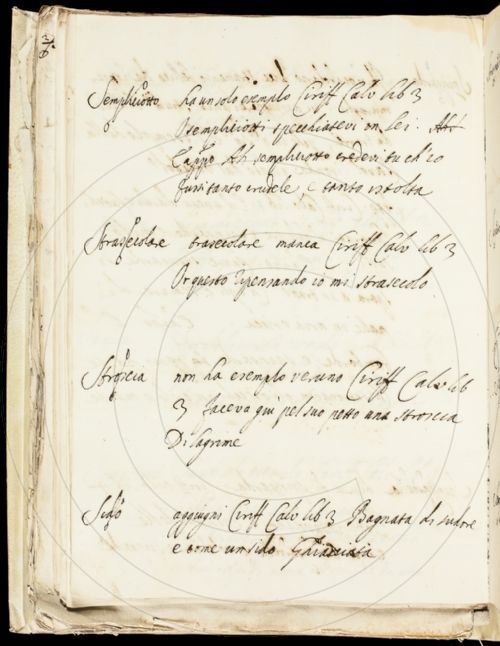 Sempliciotto ha un solo esempio Ciriff Calv lib 3
O sempliciotti specchiatevi in lei.
Ah sempliciotto credevi tu ch'io
fussi tanto crudele, e tanto istolta
Strasecolare trasecolare manca Ciriff Calv lib 3
Or questo ripensando io mi strasecolo.
Stroscia non ha esempio veruno Ciriff Calv lib
3 Faceva giù pel suo petto una stroscia
Di lagrime
Sido aggiugni Ciriff Calv lib 3 Bagnata di sudore
e come un sido Ghiacciata